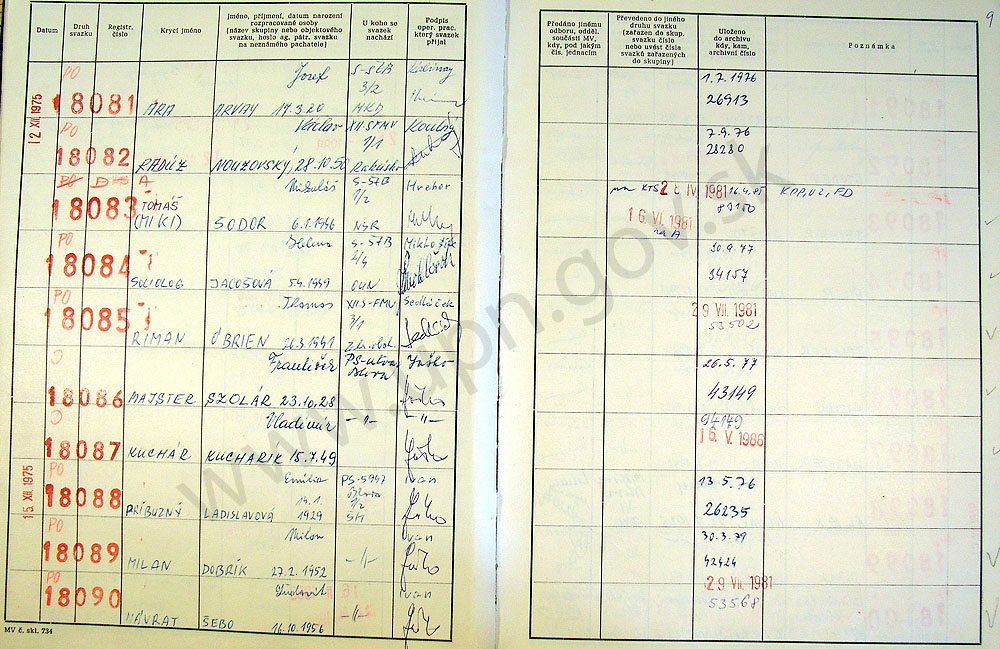 Datum
Druh svazku
Registr. číslo
Krycí jméno
Jméno, příjmení, datum narození rozpracované osoby (název skupiny nebo objektového svazku, heslo ag. pátr. svazku na neznámého pachatele)
U koho se svazek nachází
Podpis oper. prac. který svazek přijal
12 XII. 1975
PO 18081 ÁRA Jozef ARVAY 17.3.20 3/2 MKD
PO 18082 RADÚZ Václav NOUZOVSKÝ, 28.10.50 XII S-FMV 1/1 Rakúsko Koutný
PO A 18083 TOMÁŠ (MIKI) Mikuláš SODOR 6.1.1946 1/2 NSR Hrehor
PO 18084 SOCIOLOG Helena JACOŠOVÁ 5.4.1949
PO 18085 RIMAN Thomas O'BRIEN 26.3.1941 XII S-FMV 3/1 Zahr. obch. Sedláček
18086 MAJSTER František SZOLÁR 23.10.28
18087 KUCHÁR Vladimír KUCHARIK 15.7.49 -"- -"-
15. XII 1975
PO 18088 PRÍBUZNÝ Emília LADISLAVOVÁ 14.1. 1929 1/2 Ivan
PO 18089 MILAN Milan DOBRÍK 27.2.1952 -"- Ivan
PO 18090 NÁVRAT Ľudovít ŠEBO 16.10.1956 -"- Ivan
MV č. skl. 734
9
Předáno jinému odboru, odděl. součásti MV, kdy, pod jakým čís. jednacím
Převedeno do jiného druhu svazku (zařazen do skup. svazku číslo nebo uvést čísla svazků zařazených do skupiny)
Uloženo do archivu kdy, kam, archivní číslo
Poznámka
1.7.1976
26913
7.9.76
28280
KTS 2 IV 1981
16 VI. 1981
na A
30.9.77
34157
29 VII. 1981
53502
26.5.77
43149
94149
16. V. 1986
13.5.76
26235
30.3.79
42424
29 VII. 1981
53568
www.upn.gov.sk